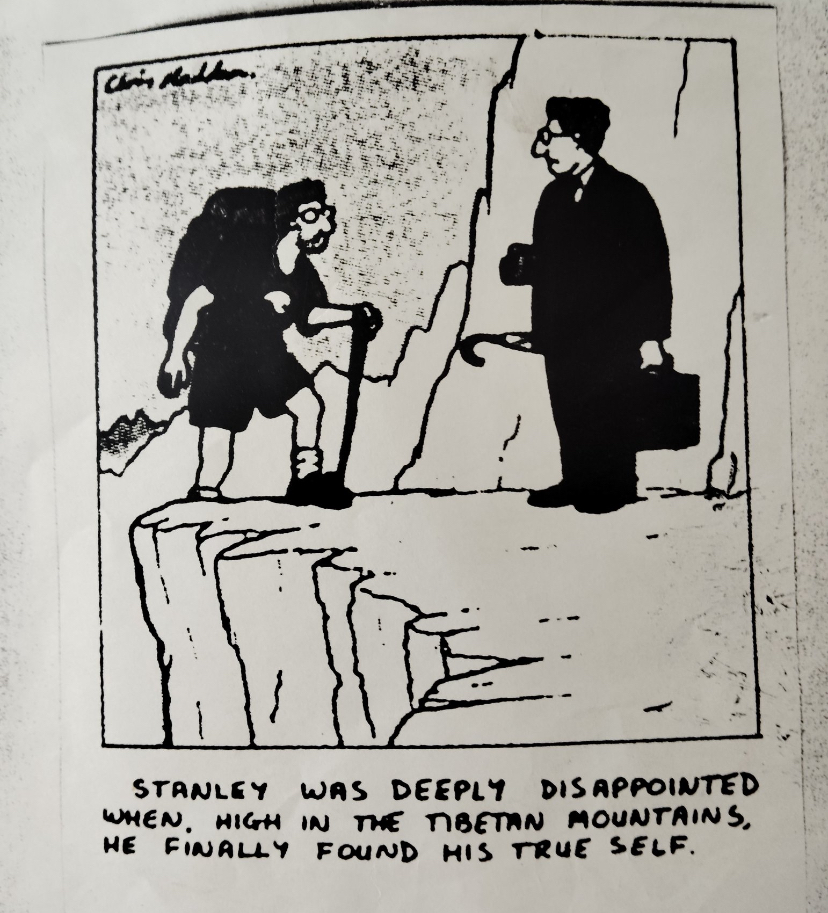 Chris Madden.
STANLEY WAS DEEPLY DISAPPOINTED
WHEN, HIGH IN THE TIBETAN MOUNTAINS,
HE FINALLY FOUND HIS TRUE SELF.